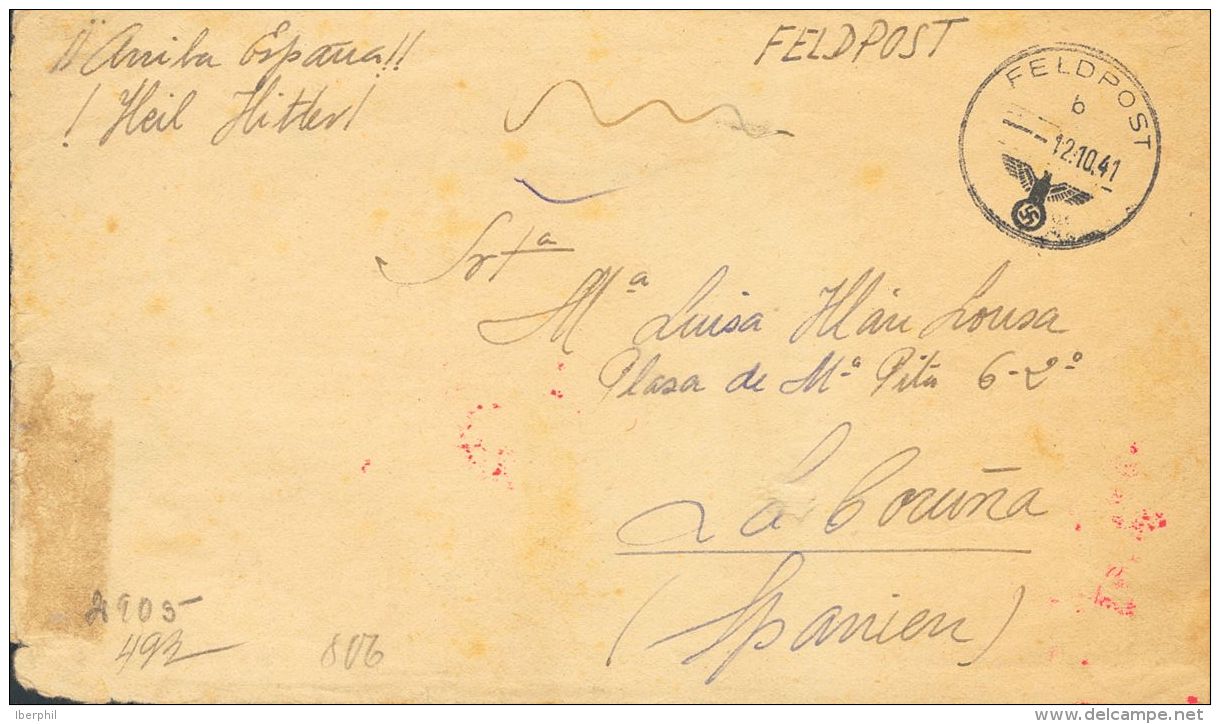 ¡¡Arriba España!!
¡Heil Hitler!
FELDPOST
FELDPOST
b
12.10.41
Srtª
Mª Luisa
Plasa de Mª Pita 6-2º
La Coruña
(Spanien)
2905
493
806
Iberphil
delcampe.net